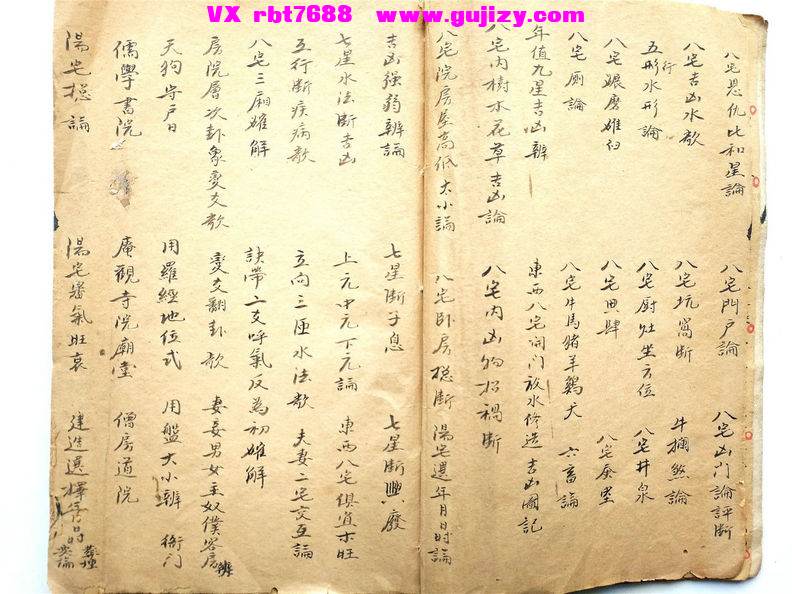 VX rbt7688 www.gujizy.com
八宅恩仇比和星論 八宅門户論 八宅凶門論評断
八宅吉凶水歌 八宅坑窩断 牛欄煞論
五形水形論 八宅厨灶坐方位 八宅井泉
行
八宅碾磨碓臼 八宅畀肆
八宅厠論 八宅牛馬猪羊鷄犬 六畜論
年值九星吉凶辨 東西八宅開门放水修造吉凶圖記
八宅内樹木花草吉凶論 八宅内凶物招禍断
八宅院房屋高低大小論 八宅卧房捴断 陽宅選年月日時論
吉凶强弱辨論 七星断子息 七星断興廢
七星水法断吉凶 上元中元下元論 東西八宅俱宜木旺
五行断疾病歌 立向三匝水法歌 夫妻二宅交互論
八宅三厢难解 訣帶二爻呼氣反為初难解
房院層次卦象变爻歌 变爻翻卦歌 妻妾男女主奴僕客房辨
天狗守戶日 用羅經地位式 用盤大小辨 衙门
儒學書院 庵觀寺院廟堂 僧房道院
陽宅捴論 陽宅氣旺衰 建造選擇日時